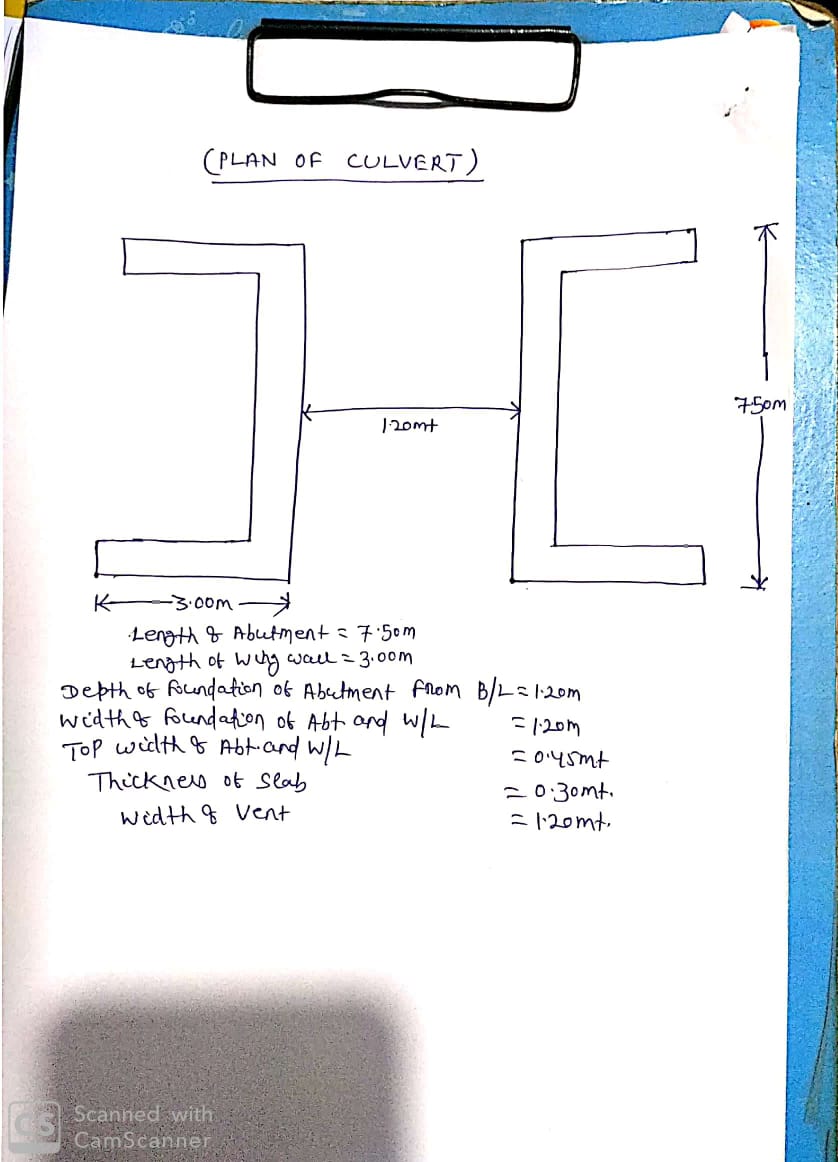 (PLAN OF CULVERT)
1.20mt
7.50m
3.00m
Length of Abutment = 7.50m
Length of Wing wall = 3.00m
Depth of foundation of Abutment from B/L = 1.20m
width of foundation of Abt and W/L = 1.20m
Top width of Abt. and W/L = 0.45mt
Thickness of Slab = 0.30mt.
width of Vent = 1.20mt.
CS Scanned with
CamScanner